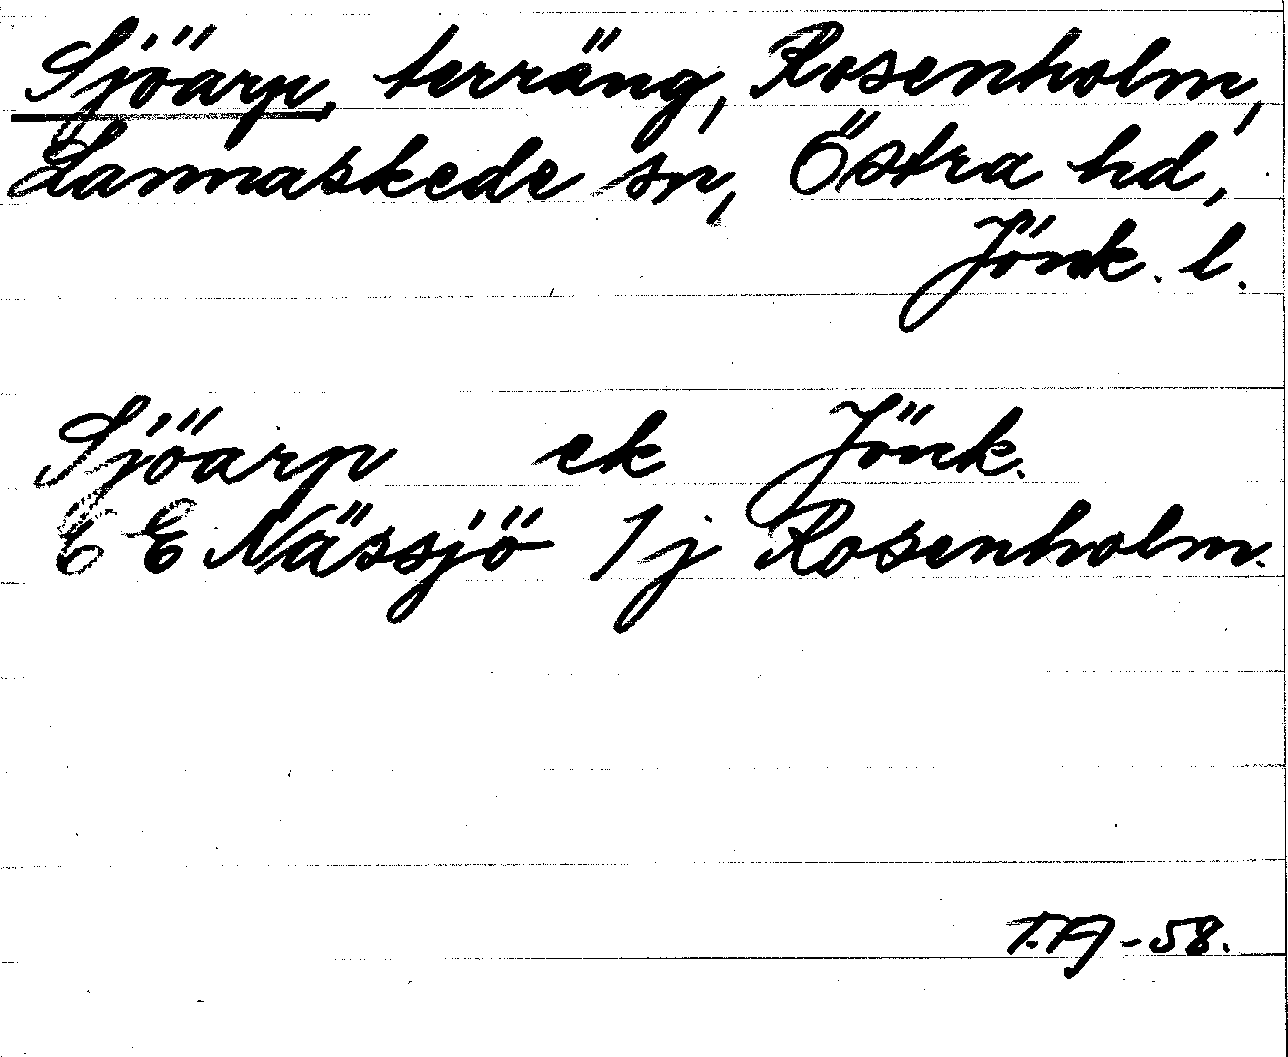 Sjöarp, terräng, Rosenholm,
Lannaskede sn, Östra hd,
Jönk. l.
Sjöarp ek Jönk.
E Nässjö 1j Rosenholm.
-58.